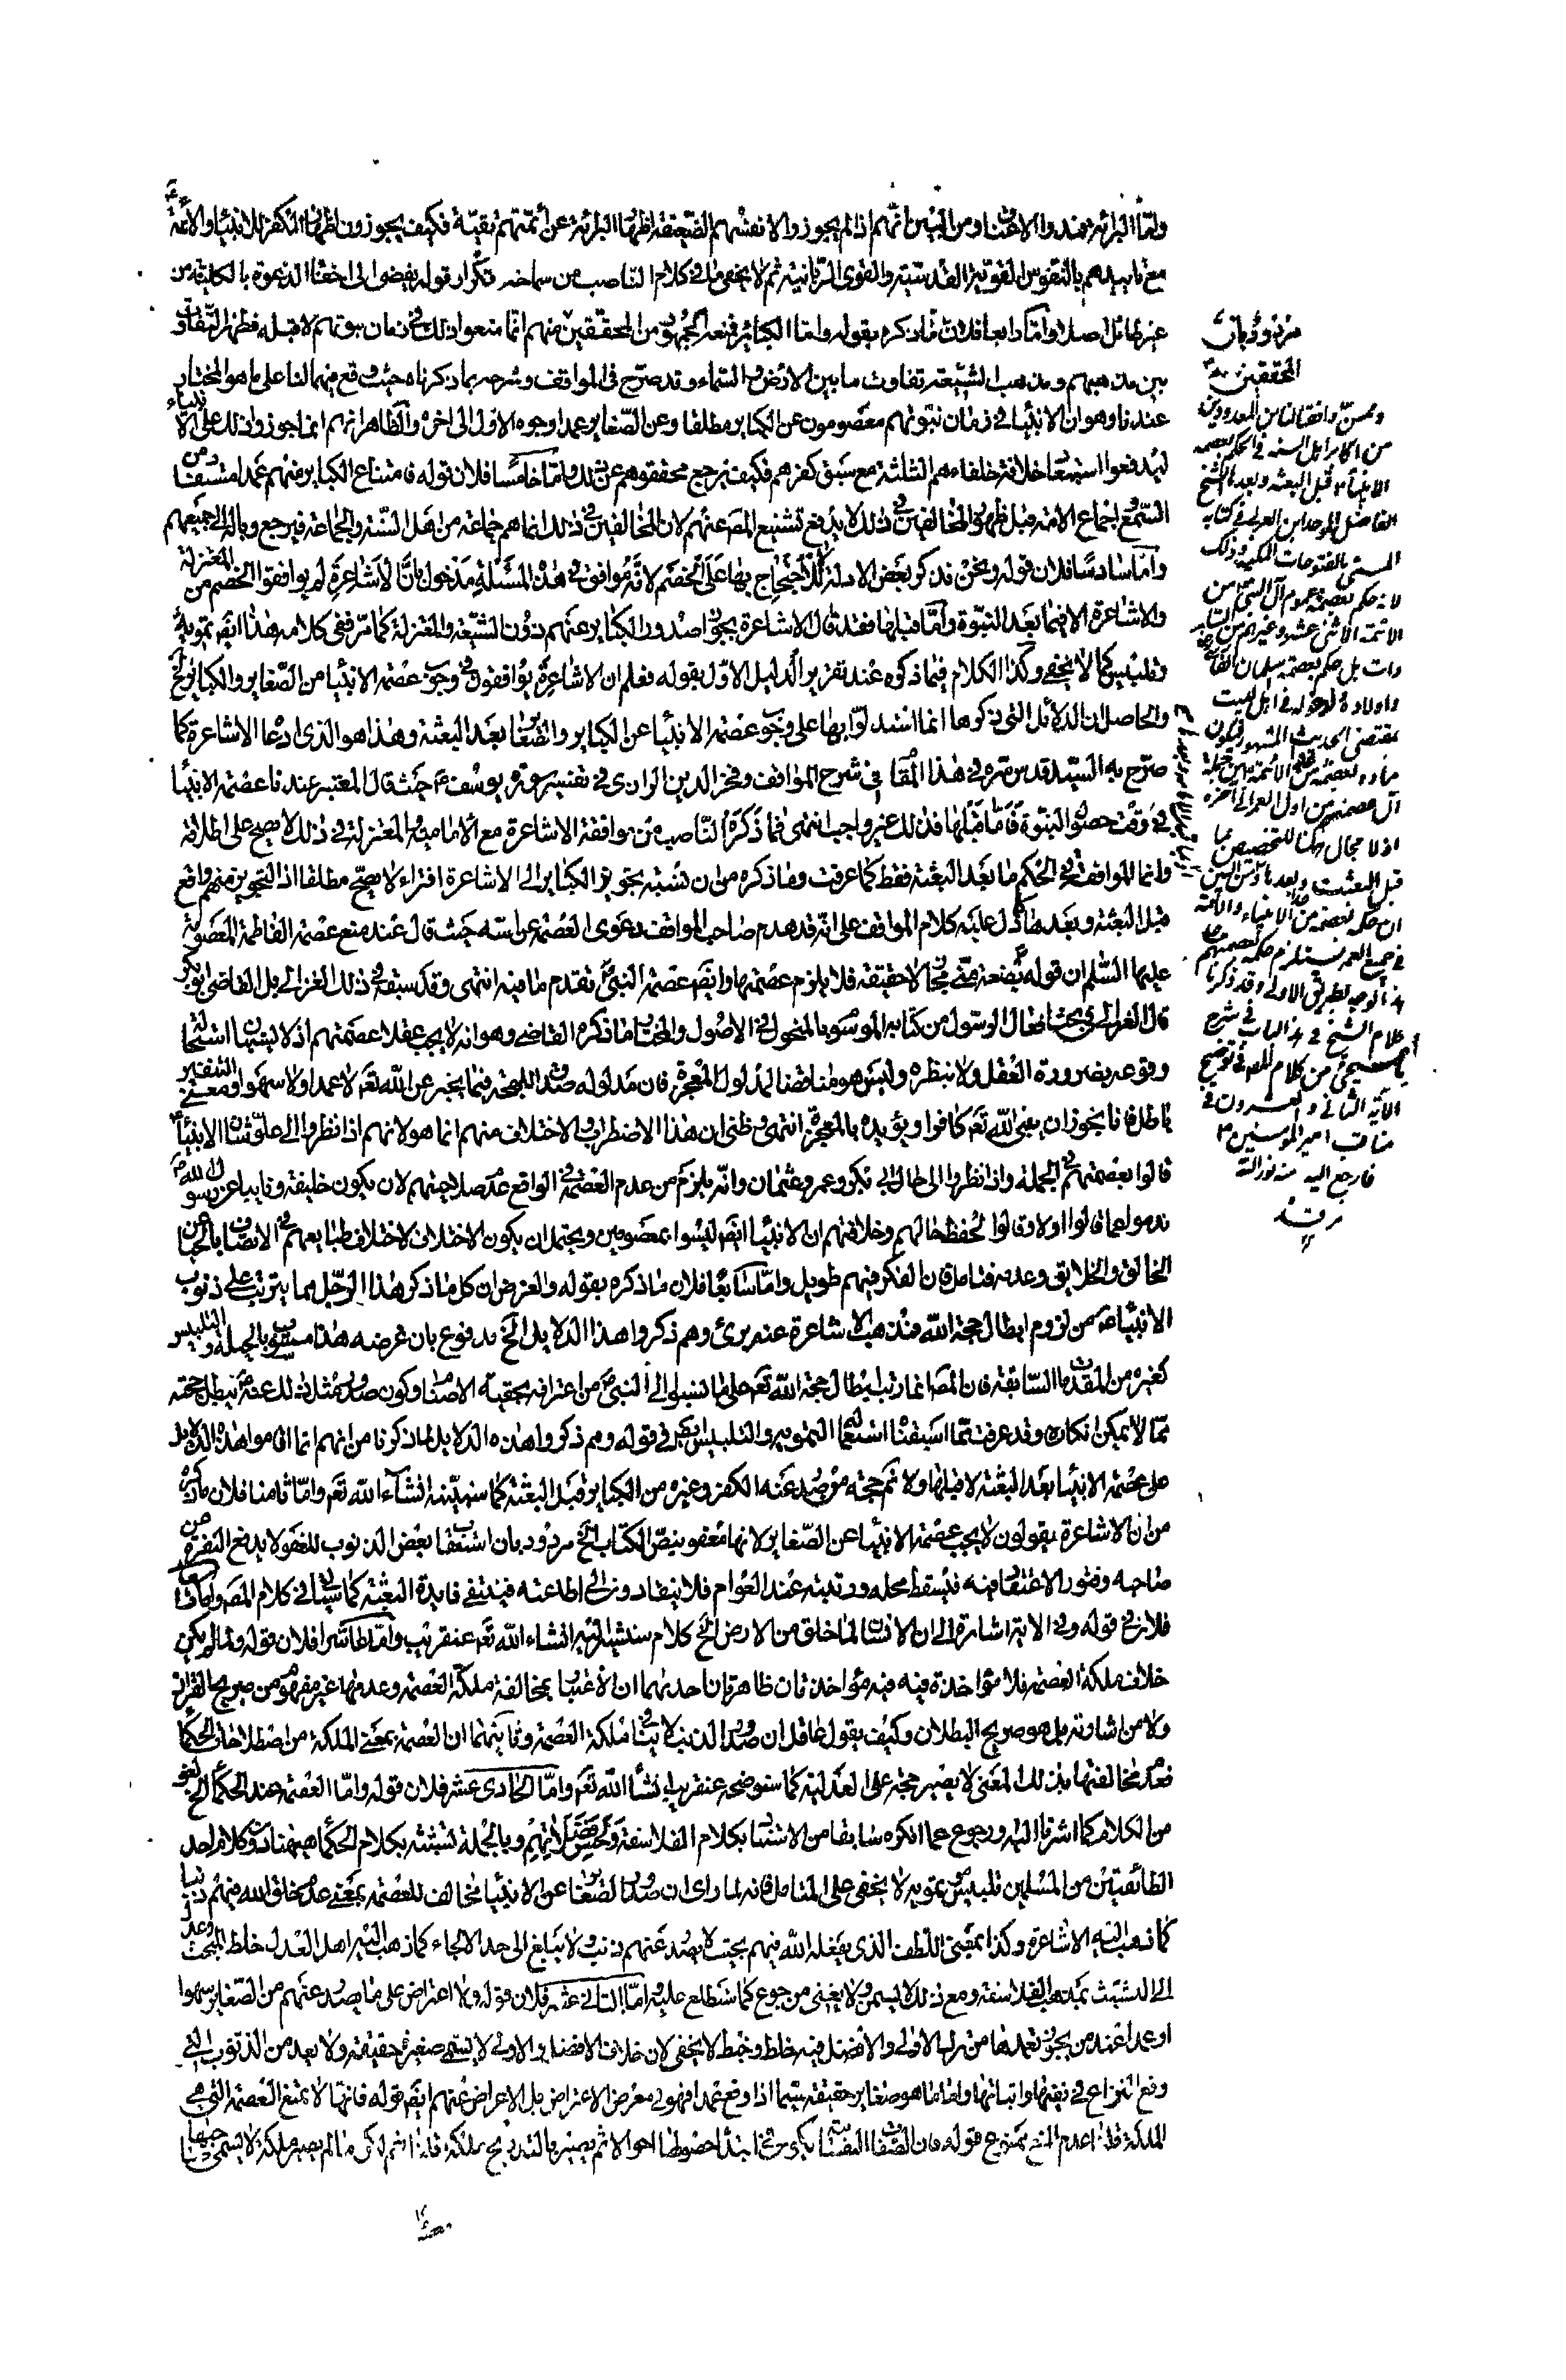 واما البرائة فمدوا الاعناق ومن البين انهم اذا لم يجوزوا لانفسهم الضعيفة اظهار البرائة عن أئمتهم تقية فكيف يجوزون اظهار الكفر للانبياء والائمة
مع تاييدهم بالنفوس القوية القدسية والقوى الربانية ثم لا يخفى ما في كلام الناصب من سماجة تكرار قوله يفضى الى اخفاء الدعوة بالكلية من
غير طائل اصلا واما رابعا فلان ما ذكره بقوله واما الكبائر فمنعه الجمهور من المحققين منهم انما منعوا ذلك في زمان نبوتهم لا قبله فظهر التفاوت
بين مذهبهم ومذهب الشيعة تفاوت ما بين الارض والسماء وقد صرح في المواقف وشرحه بما ذكرناه حيث وقع فيهما لنا على ما هو المختار
عندنا وهو ان الانبياء في زمان نبوتهم معصومون عن الكبائر مطلقا وعن الصغاير عمدا وجوه الاول الى اخره والظاهر انهم انما جوزوا ذلك على الانبياء
ليدفعوا استبعاد خلافة خلفاءهم الثلثة مع سبق كفرهم فكيف يرجع محققوهم عن ذلك واما خامسا فلان قوله فامتناع الكبائر منهم عمدا مستفاد من
السمع اجماع الامة قبل ظهور المخالفين في ذلك لا يدفع تشنيع المصـ عنهم لان المخالفين في ذلك انما هم جماعة من اهل السنة والجماعة فيرجع وباله الى جميعهم
واما سادسا فلان قوله ونحن نذكر بعض الادلة لا للاحتجاج بها على الخصم لانه موافق في هذه المسئلة مدخول بان الاشاعرة لم يوافقوا الخصم من المعتزلة
والاشاعرة الا فيما بعد النبوة واما قبلها فقد قال الاشاعرة بجواز صدور الكبائر عنهم دون الشيعة والمعتزلة كما مر ففي كلامه هذا ايضـ تمويه
وتلبيس كما لا يخفى وكذا الكلام فيما ذكره عند تقرير الدليل الاول بقوله فعلم ان الاشاعرة يوافقون في وجوب عصمة الانبياء من الصغاير والكبائر الخ
والحاصل ان الدلائل التي ذكروها انما استدلوا بها على وجوب عصمة الانبياء عن الكبائر والصغاير بعد البعثة وهذا هو الذي ادعاه الاشاعرة كما
صرح به السيد قدس سره في هذا المقام في شرح المواقف وفخر الدين الرازى في تفسير سورة يوسف ع حيث قال المعتبر عندنا عصمة الانبياء
في وقت حصول النبوة فاما قبلها فذلك غير واجب انتهى فما ذكره الناصب من موافقة الاشاعرة مع الامامية والمعتزلة في ذلك لا يصح على اطلاقه
وانما الموافقة في الحكم ما بعد البعثة فقط كما عرفت وما ذكره من ان نسبة تجويز الكبائر الى الاشاعرة افتراء لا يصح مطلقا اذ التجويز منهم واقع
قبل البعثة وبعدها كما دل عليه كلام المواقف على انه قد هدم صاحب المواقف دعوى العصمة عن اسه حيث قال عند منع عصمة الفاطمة المعصومة
عليها السلم ان قوله بضعة مني مجاز لا حقيقة فلا يلزم عصمتها وايضـ عصمة النبي قد تقدم ما فيه انتهى وقد سبقه في ذلك الغزالى بل القاضى ابوبكر
قال الغزالى في بحث افعال الرسول من كتابه الموسوم بالمنخول في الاصول والمختار ما ذكره القاضى وهو انه لا يجب عقلا عصمتهم اذ لا يتبين استحالة
وقوعه بضرورة العقل ولا بنظره وليس هو مناقضا لمدلول المعجزة فان مدلوله صدق اللهجة فيما يخبر عن الله تعـ لا عمدا ولا سهوا ومعنى التنفير
باطل فانا نجوز ان ينبى الله تعـ كافرا ويؤيده بالمعجزة انتهى وظنى ان هذا الاضطراب والاختلاف منهم انما هو لانهم اذا نظروا الى علو شان الانبياء
قالوا بعصمتهم في الجملة واذا نظروا الى حال ابى بكر وعمر وعثمان وانه يلزم من عدم العصمة في الواقع عدم صلاحيتهم لان يكون خليفة ونايبا عن رسول الله ص
ندموا عما قالوا اولا وقالوا لحفظ حالهم وخلافتهم ان الانبياء ايضـ ليسوا بمعصومين ويحتمل ان يكون الاختلاف لاختلاف طبايعهم في الانصاف بالحياء من
الخالق والخلايق وعدمه فتامل فان الفكر فيهم طويل واما سابعا فلان ما ذكره بقوله والغرض ان كل ما ذكر هذا الرجل مما يترتب على ذنوب
الانبياء من لزوم ابطال حجة الله فمذهب الاشاعرة عنه برئ وهم ذكروا هذا الدلايل الخ مدفوع بان غرضه هذا مشوب بالحيلة والتلبيس
كغيره من المقدمات السابقة فان المصـ انما رتب ابطال حجة الله تعـ على ما نسبوا الى النبي ص من اعترافه بحقية الاصنام وكون صدور مثل ذلك عنه ص مبطل حجته
مما لا يمكن انكاره وقد عرفت مما اسبقنا استعماله التمويه والتلبيس في قوله وهم ذكروا هذه الدلايل لما ذكرنا من انهم انما اقاموا هذه الدلايل
على عصمة الانبياء بعد البعثة لا قبلها ولا تتم حجة مع صدور الكفر وغيره من الكبائر قبل البعثة كما سنبينه انشاء الله تعـ واما ثامنا فلان ما ذكره
من ان الاشاعرة يقولون لا يجب عصمة الانبياء عن الصغاير لانها معفو بنص الكتاب الخ مردود بان استعقاب بعض الذنوب للعفو لا يدفع النفرة من
صاحبه وفتور الاعتقاد فيه فيسقط محله ورتبته عند العوام فلا ينقادون الى اطاعته فينتفى فايدة البعثة كما سيأتى في كلام المصـ واما تاسعا
فلان في قوله وفي الاية اشارة الى ان الانسان لما خلق من الارض الخ كلام سنشير اليه انشاء الله تعـ عنقريب واما عاشرا فلان قوله وما لم يكن
خلاف ملكة العصمة فلا مؤاخذة فيه فيه مؤاخذتان ظاهرتان احديهما ان الاعتبار بمخالفة ملكة العصمة وعدمها غير مفهوم من صريح القرآن
ولا من اشارته بل هو صريح البطلان وكيف يقول عاقل ان صدور الذنب لا ينافى ملكة العصمة وثانيتهما ان العصمة بمعنى الملكة من اصطلاحات الحكماء
فعدم مخالفتها بذلك المعنى لا يصير حجة على العدلية كما سنوضحه عنقريب انشاء الله تعـ واما الحادى عشر فلان قوله واما العصمة عند الحكماء الخ لغو
من الكلام كما اشرنا اليه ورجوع عما انكره سابقا من الاستناد بكلام الفلاسفة وبالجملة تشبثه بكلام الحكماء هيهنا دون كلام احد
الطائفتين من المسلمين تلبيس وتمويه لا يخفى على المتامل فانه لما راى ان صدور الصغاير عن الانبياء مخالف للعصمة بمعنى عدم خلق الله فيهم ذنبا
كما ذهب اليه الاشاعرة وكذا بمعنى اللطف الذي يفعله الله فيهم بحيث لا يصدر عنهم ذنب ولا يبلغ الى حد الالجاء كما ذهب اليه اهل العدل خلط المبحث وعدل
الى التشبث بمذهب الفلاسفة ومع ذلك لا يسمن ولا يغنى من جوع كما ستطلع عليه واما الثانى عشر فلان قوله ولا اعتراض على ما يصدر عنهم من الصغاير سهوا
او عمدا عند من يجوز تعمدها من ترك الاولى والافضل فيه خلط وخبط لا يخفى لان خلاف الافضل والاولى لا يسمى صغيرة حقيقة ولا يعد من الذنوب التى
وقع النزاع في نفيها واثباتها واما ما هو صغاير حقيقة سيما اذا وقع عمدا فهو في معرض الاعتراض بل الاعراض عنهم ايضـ قوله فانها لا تمنع العصمة التى هى
الملكة قوله فان الصفات النفسانية يكون في ابتداء حصولها احوالا ثم يصير بالتدريج ملكة ما لم يصير ملكة لا يسمى
مردود بان
المحققين
وممن وافقنا من المعدودين
من اكابر اهل السنة في الحكم بعصمة
الانبياء قبل البعثة وبعدها الشيخ
الفاضل الموحد ابن العربى في كتابه
المسمى بالفتوحات المكية وذلك
لانه حكم بعصمة عموم آل النبى ص من
الائمة الاثنى عشر وغيرهم من
السادات بل حكم بعصمة سلمان الفارسى
واولاده لدخوله في اهل البيت
بمقتضى الحديث المشهور فيكون
آل عصمتهم من اول العمر الى آخره
اذ لا مجال هنا للتخصيص بما
قبل البعثت وبعدها ومن البين
ان حكمه بعصمة من الانبياء والائمة
في جميع العمر يستلزم حكمه بعصمتهم
بطريق الاولى وقد ذكرنا
كلام الشيخ في هذا الباب في شرح
ما سيجئ من كلام المصـ في توضيح
الآية الثانى والعشرون في
مناقب امير المؤمنين ع
فارجع اليه منه نور الله
مرقده